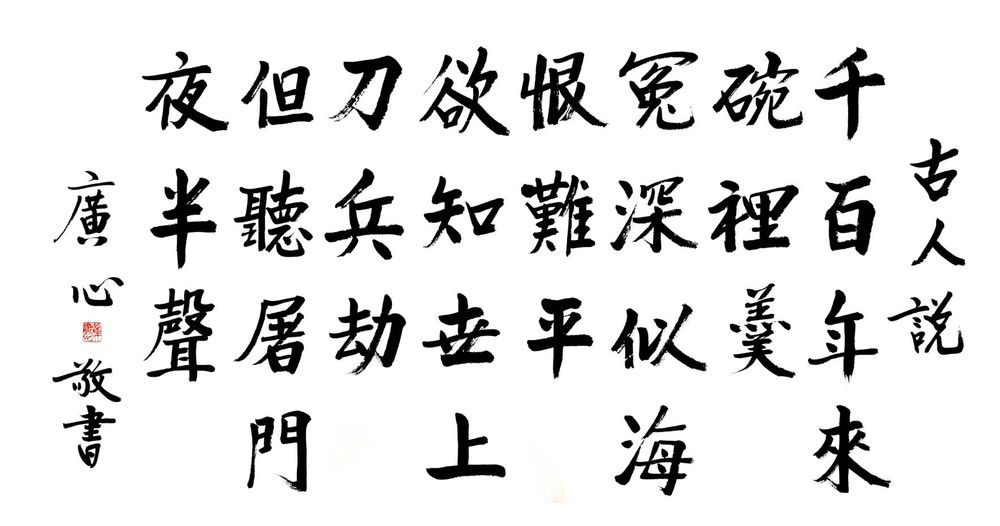 古人説
千百年來
碗裡羹
冤深似海
恨難平
欲知世上
刀兵劫
但聽屠門
夜半聲
廣心敬書